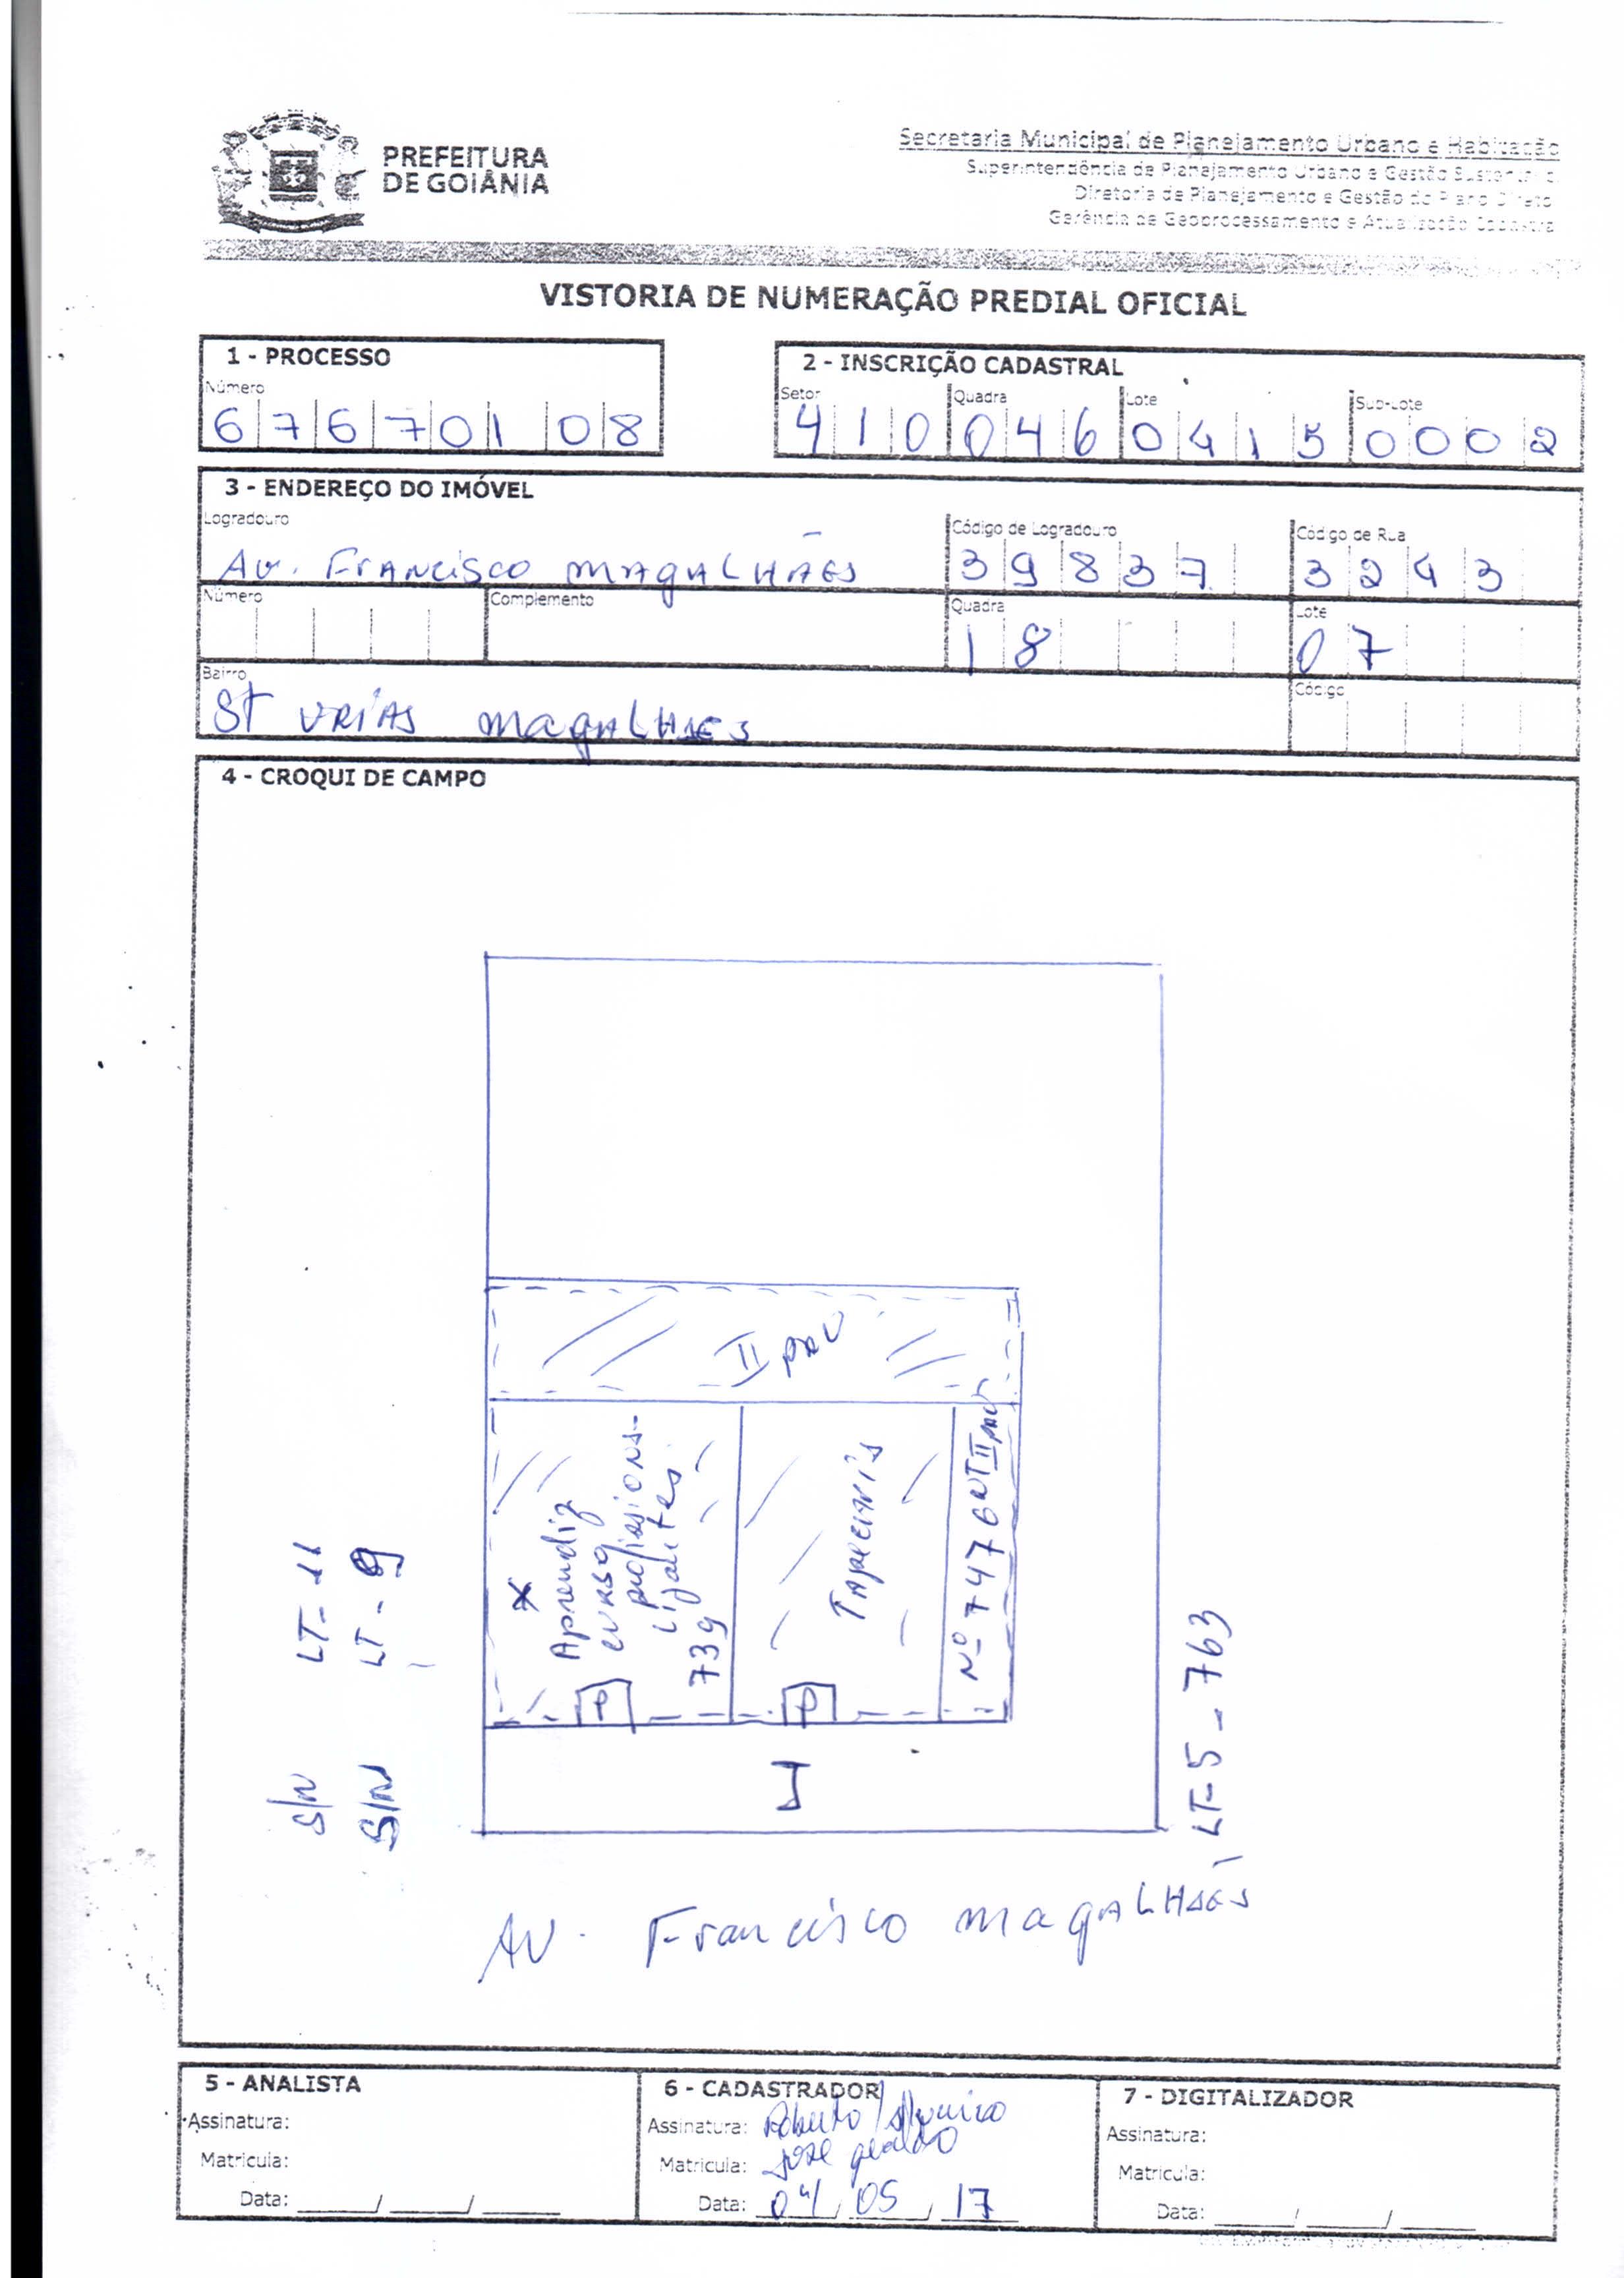 PREFEITURA
DE GOIÂNIA
Secretaria Municipal de Planejamento Urbano e Habitação
Superintendência de Planejamento Urbano e Gestão Sustentável
Diretoria de Planejamento e Gestão do Plano Diretor
Gerência de Geoprocessamento e Atualização Cadastral
VISTORIA DE NUMERAÇÃO PREDIAL OFICIAL
1 - PROCESSO
Número
6 7 6 7 0 1 0 8
2 - INSCRIÇÃO CADASTRAL
Setor Quadra Lote Sub-Lote
4 1 0 0 4 6 0 4 1 5 0 0 0 2
3 - ENDEREÇO DO IMÓVEL
Logradouro Código de Logradouro Código de Rua
Av. Francisco magalhães 3 9 8 3 7 3 2 4 3
Número Complemento Quadra Lote
1 8 0 7
Bairro Código
St URIAS magalHAES
4 - CROQUI DE CAMPO
II PAV
X
Aprendiz
curso
profissiona-
lizantes
739
P
Tapecaris
P
Nº 747 ENT II PAV
LT - 11
S/N
LT - 9
S/N
LT-5 - 763
AV. Francisco magalHAES
5 - ANALISTA
Assinatura:
Matricula:
Data: ____/____/____
6 - CADASTRADOR
Assinatura: Roberto
Matricula: José geraldo
Data: 04/05/17
7 - DIGITALIZADOR
Assinatura:
Matricula:
Data: ____/____/____